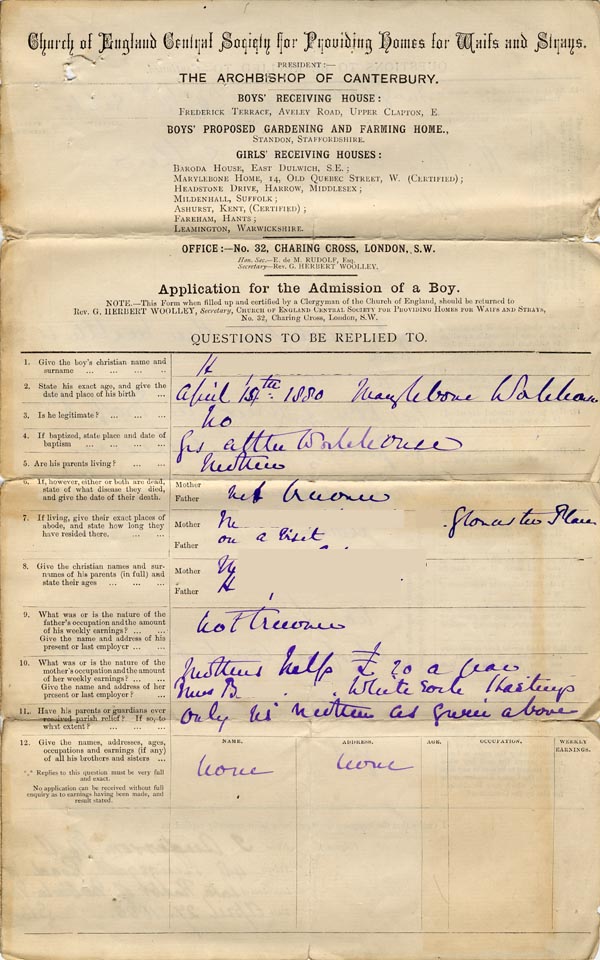 Church of England Central Society for Providing Homes for Waifs and Strays.
PRESIDENT:—
THE ARCHBISHOP OF CANTERBURY.
BOYS' RECEIVING HOUSE:
FREDERICK TERRACE, AVELEY ROAD, UPPER CLAPTON, E.
BOYS' PROPOSED GARDENING AND FARMING HOME.,
STANDON, STAFFORDSHIRE.
GIRLS' RECEIVING HOUSES:
BARODA HOUSE, EAST DULWICH, S.E.;
MARYLEBONE HOME, 14, OLD QUEBEC STREET, W. (CERTIFIED);
HEADSTONE DRIVE, HARROW, MIDDLESEX;
MILDENHALL, SUFFOLK;
ASHURST, KENT, (CERTIFIED);
FAREHAM, HANTS;
LEAMINGTON, WARWICKSHIRE.
OFFICE:—No. 32, CHARING CROSS, LONDON, S.W.
Hon. Sec.—E. de M. RUDOLF, Esq.
Secretary—Rev. G. HERBERT WOOLLEY.
Application for the Admission of a Boy.
NOTE.—This Form when filled up and certified by a Clergyman of the Church of England, should be returned to
Rev. G. HERBERT WOOLLEY, Secretary, CHURCH OF ENGLAND CENTRAL SOCIETY FOR PROVIDING HOMES FOR WAIFS AND STRAYS,
No. 32, Charing Cross, London, S.W.
QUESTIONS TO BE REPLIED TO.
1. Give the boy's christian name and
surname ... ... ... ...
H
2. State his exact age, and give the
date and place of his birth ...
April 18th 1880 Marylebone Workhouse
3. Is he legitimate? ... ... ...
No
4. If baptized, state place and date of
baptism ... ... ... ...
Yes at the Workhouse
5. Are his parents living? ... ...
Mother
6. If, however, either or both are dead,
state of what disease they died,
and give the date of their death.
Mother
Father
not known
7. If living, give their exact places of
abode, and state how long they
have resided there. ... ...
Mother
Father
M
on a visit
Gloucester Place
8. Give the christian names and sur-
names of his parents (in full) and
state their ages ... ... ...
Mother
Father
M
H
9. What was or is the nature of the
father's occupation and the
amount of his weekly earnings? ...
Give the name and address of his
present or last employer ... ...
not known
10. What was or is the nature of the
mother's occupation and the amount
of her weekly earnings? ... ...
Give the name and address of her
present or last employer? ...
Mothers help £20 a year
Mrs B. White Rock Hastings
11. Have his parents or guardians ever
received parish relief? If so, to
what extent? ... ... ...
only his mother as given above
12. Give the names, addresses, ages,
occupations and earnings (if any)
of all his brothers and sisters ...
*** Replies to this question must be very full
and exact.
No application can be received without full
enquiry as to earnings having been made, and
result stated.
NAME. ADDRESS. AGE. OCCUPATION. WEEKLY
EARNINGS.
none none